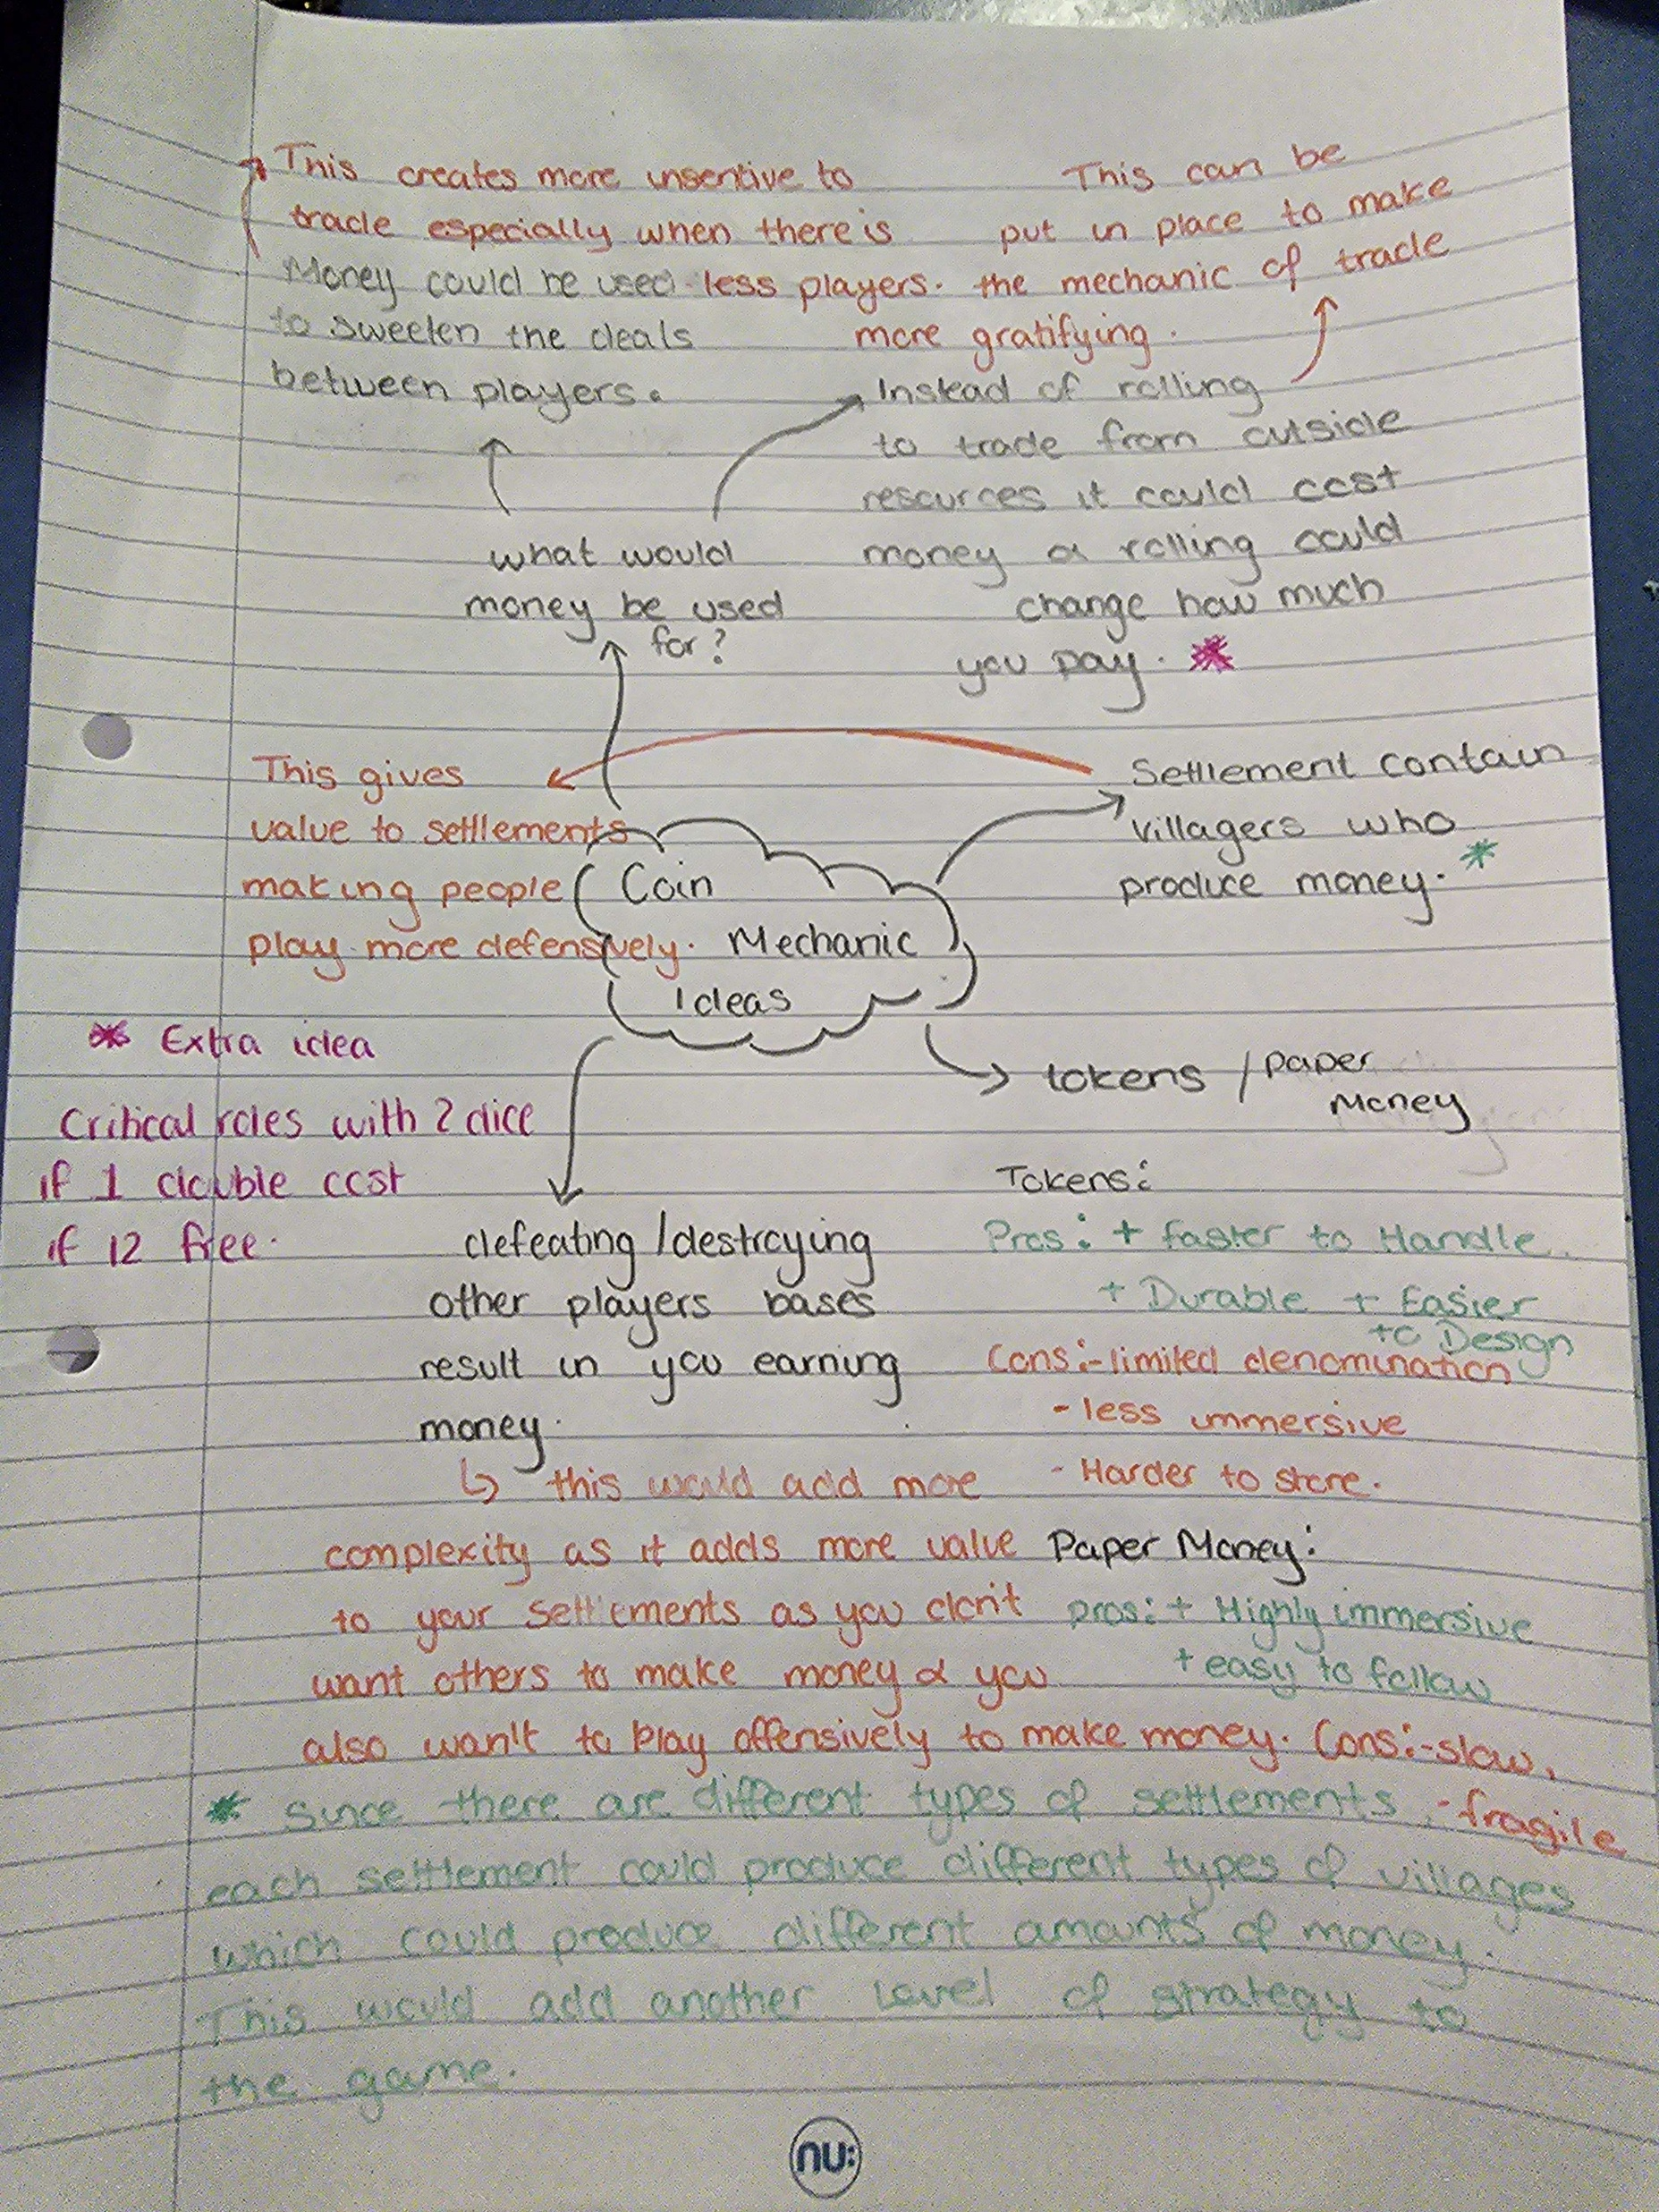 This creates more insentive to
trade especially when there is
less players.
Money could be used
to sweeten the deals
between players.
This can be
put in place to make
the mechanic of trade
more gratifying.
Instead of rolling
to trade from outside
resources it could cost
money a rolling could
change how much
you pay. *
what would
money be used
for?
This gives
value to settlements
making people
play more defensively.
Settlement contain
villagers who
produce money. *
Coin
Mechanic
Ideas
* Extra idea
Critical roles with 2 dice
if 1 double cost
if 12 free.
tokens / paper
Money
defeating/destroying
other players bases
result in you earning
money.
↳ this would add more
complexity as it adds more value
to your settlements as you don't
want others to make money & you
also wan't to play offensively to make money.
Tokens:
Pros: + faster to Handle.
+ Durable + Easier
to Design
Cons: - limited denomination
- less immersive
- Harder to store.
Paper Money:
pros: + Highly immersive
+ easy to follow
Cons: - slow,
- fragile
* Since there are different types of settlements
each settlement could produce different types of villages
which could produce different amounts of money.
This would add another level of strategy to
the game.
nu: